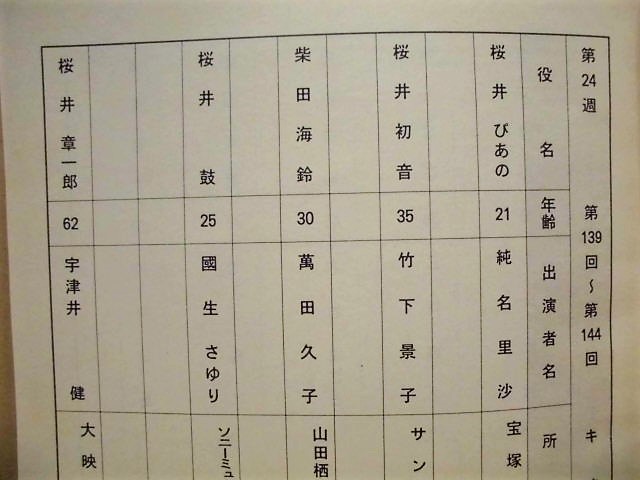 第24週 第139回～第144回 キ
役名 年齢 出演者名 所
桜井ぴあの 21 純名里沙 宝塚
桜井初音 35 竹下景子 サン
柴田海鈴 30 萬田久子 山田栖
桜井鼓 25 國生さゆり ソニーミュ
桜井章一郎 62 宇津井健 大映